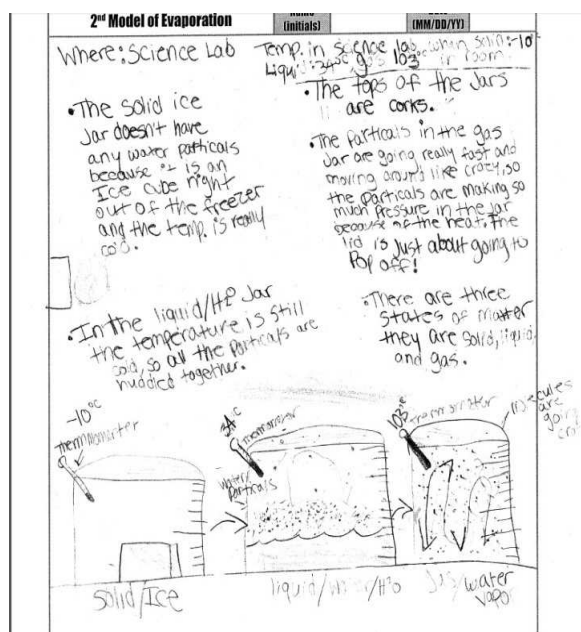 2nd Model of Evaporation
Name
(initials)
Date
(MM/DD/YY)
Where: Science Lab
Temp. in science lab when solid: -10°
Liquid: 34°c gas 103°c in room
•The solid ice
Jar doesn't have
any water particals
because it is an
Ice cube right
out of the freezer
and the temp. is really
cold.
•The tops of the Jars
are corks.
•The Particals in the gas
Jar are going really fast and
moving around like crazy, so
the particals are making so
much pressure in the jar
because of the heat. The
lid is Just about going to
Pop off!
•In the liquid/H²O Jar
the temperature is still
cold, so all the Particals are
huddled together.
•There are three
states of matter
they are solid, liquid,
and gas.
-10°C
34°C
thermometer
Water
Particals
103°C
molecules
are
going
solid/Ice
liquid/Water/H²O
gas/water
vapor